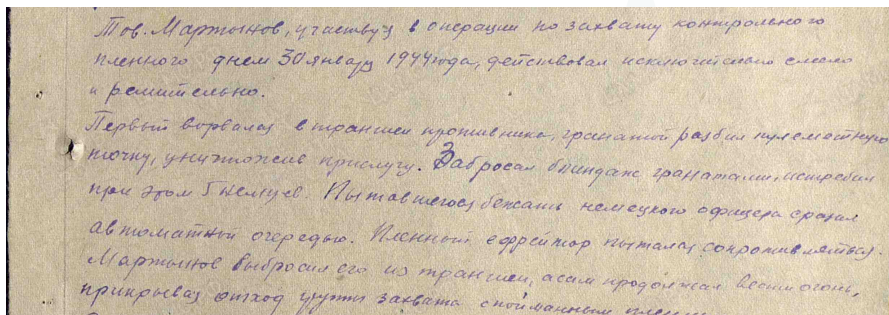 Тов. Мартынов, участвуя в операции по захвату контрольного
пленного днем 30 января 1944 года, действовал исключительно смело
и решительно.
Первый ворвался в траншеи противника, гранатой разбил пулеметную
точку, уничтожив прислугу. Забросал блиндаж гранатами, истребил
при этом 5 немцев. Пытавшегося бежать немецкого офицера сразил
автоматной очередью. Пленный ефрейтор пытался сопротивляться.
Мартынов выбросил его из траншеи, а сам продолжал вести огонь,
прикрывая отход группы захвата с пойманным